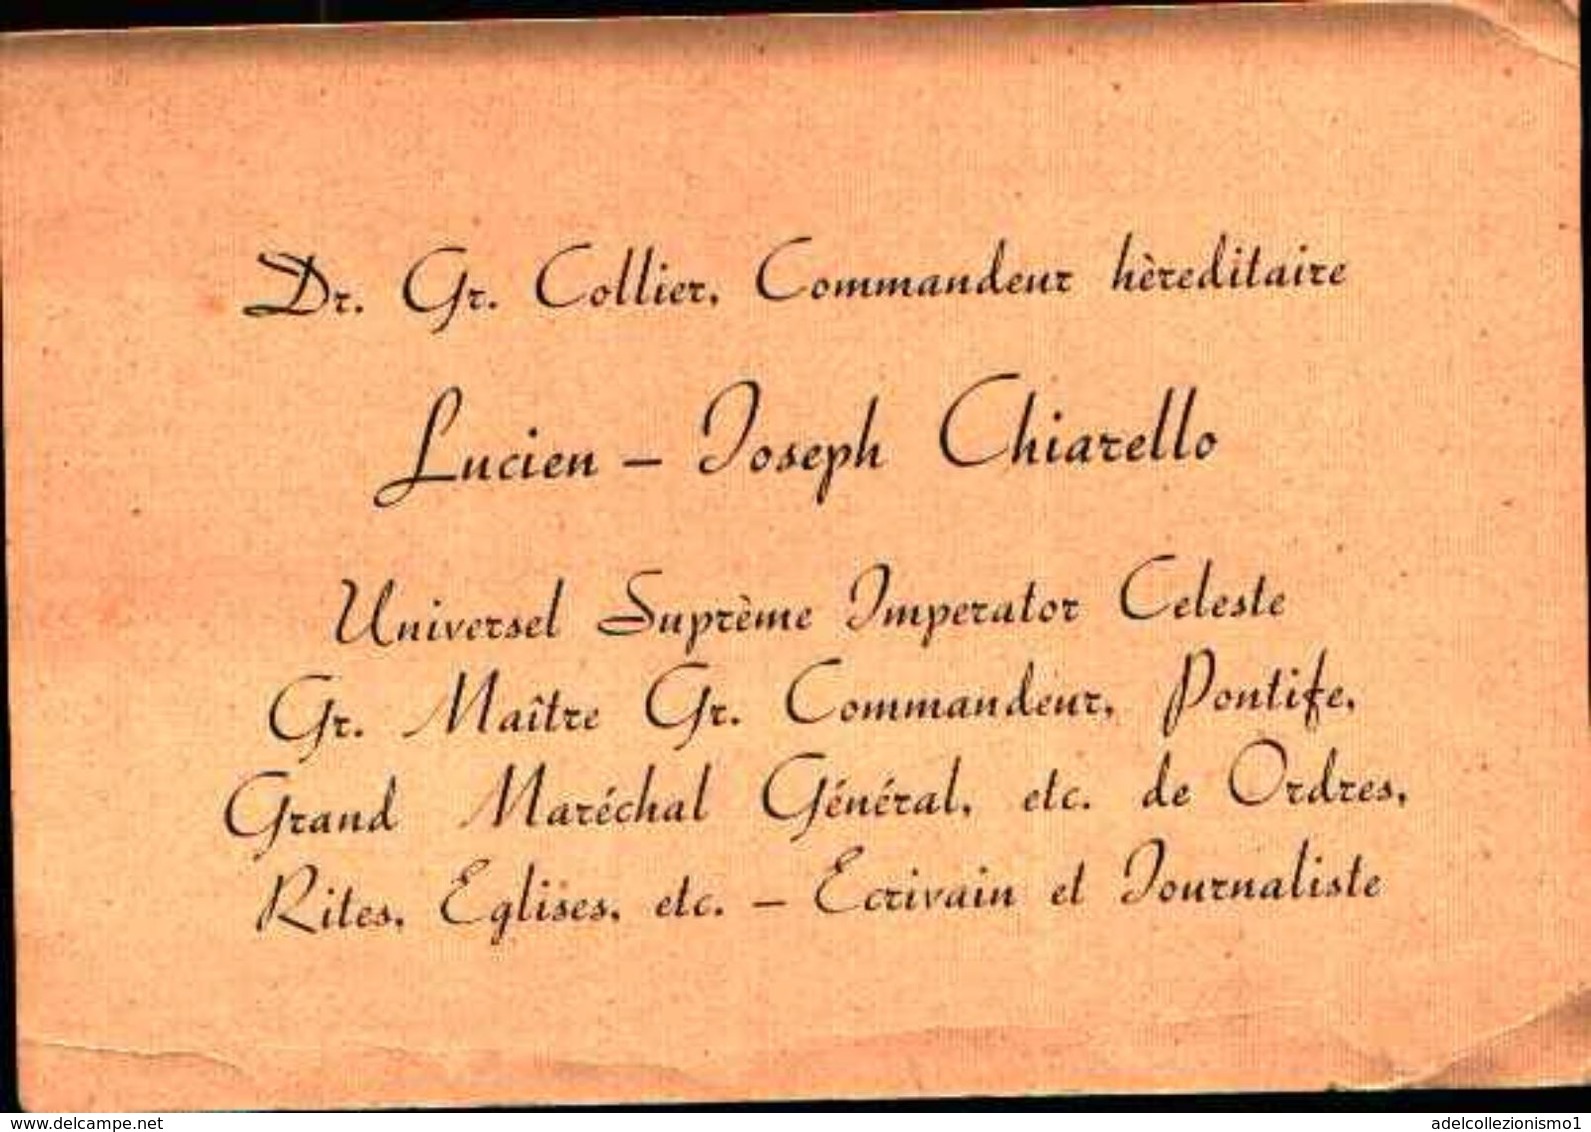 Dr. Gr. Collier, Commandeur hèreditaire
Lucien - Joseph Chiarello
Universel Suprème Imperator Celeste
Gr. Maître Gr. Commandeur, Pontife,
Grand Maréchal Général, etc. de Ordres,
Rites, Eglises, etc. - Ecrivain et Journaliste
www.delcampe.net
adelcollezionismo1